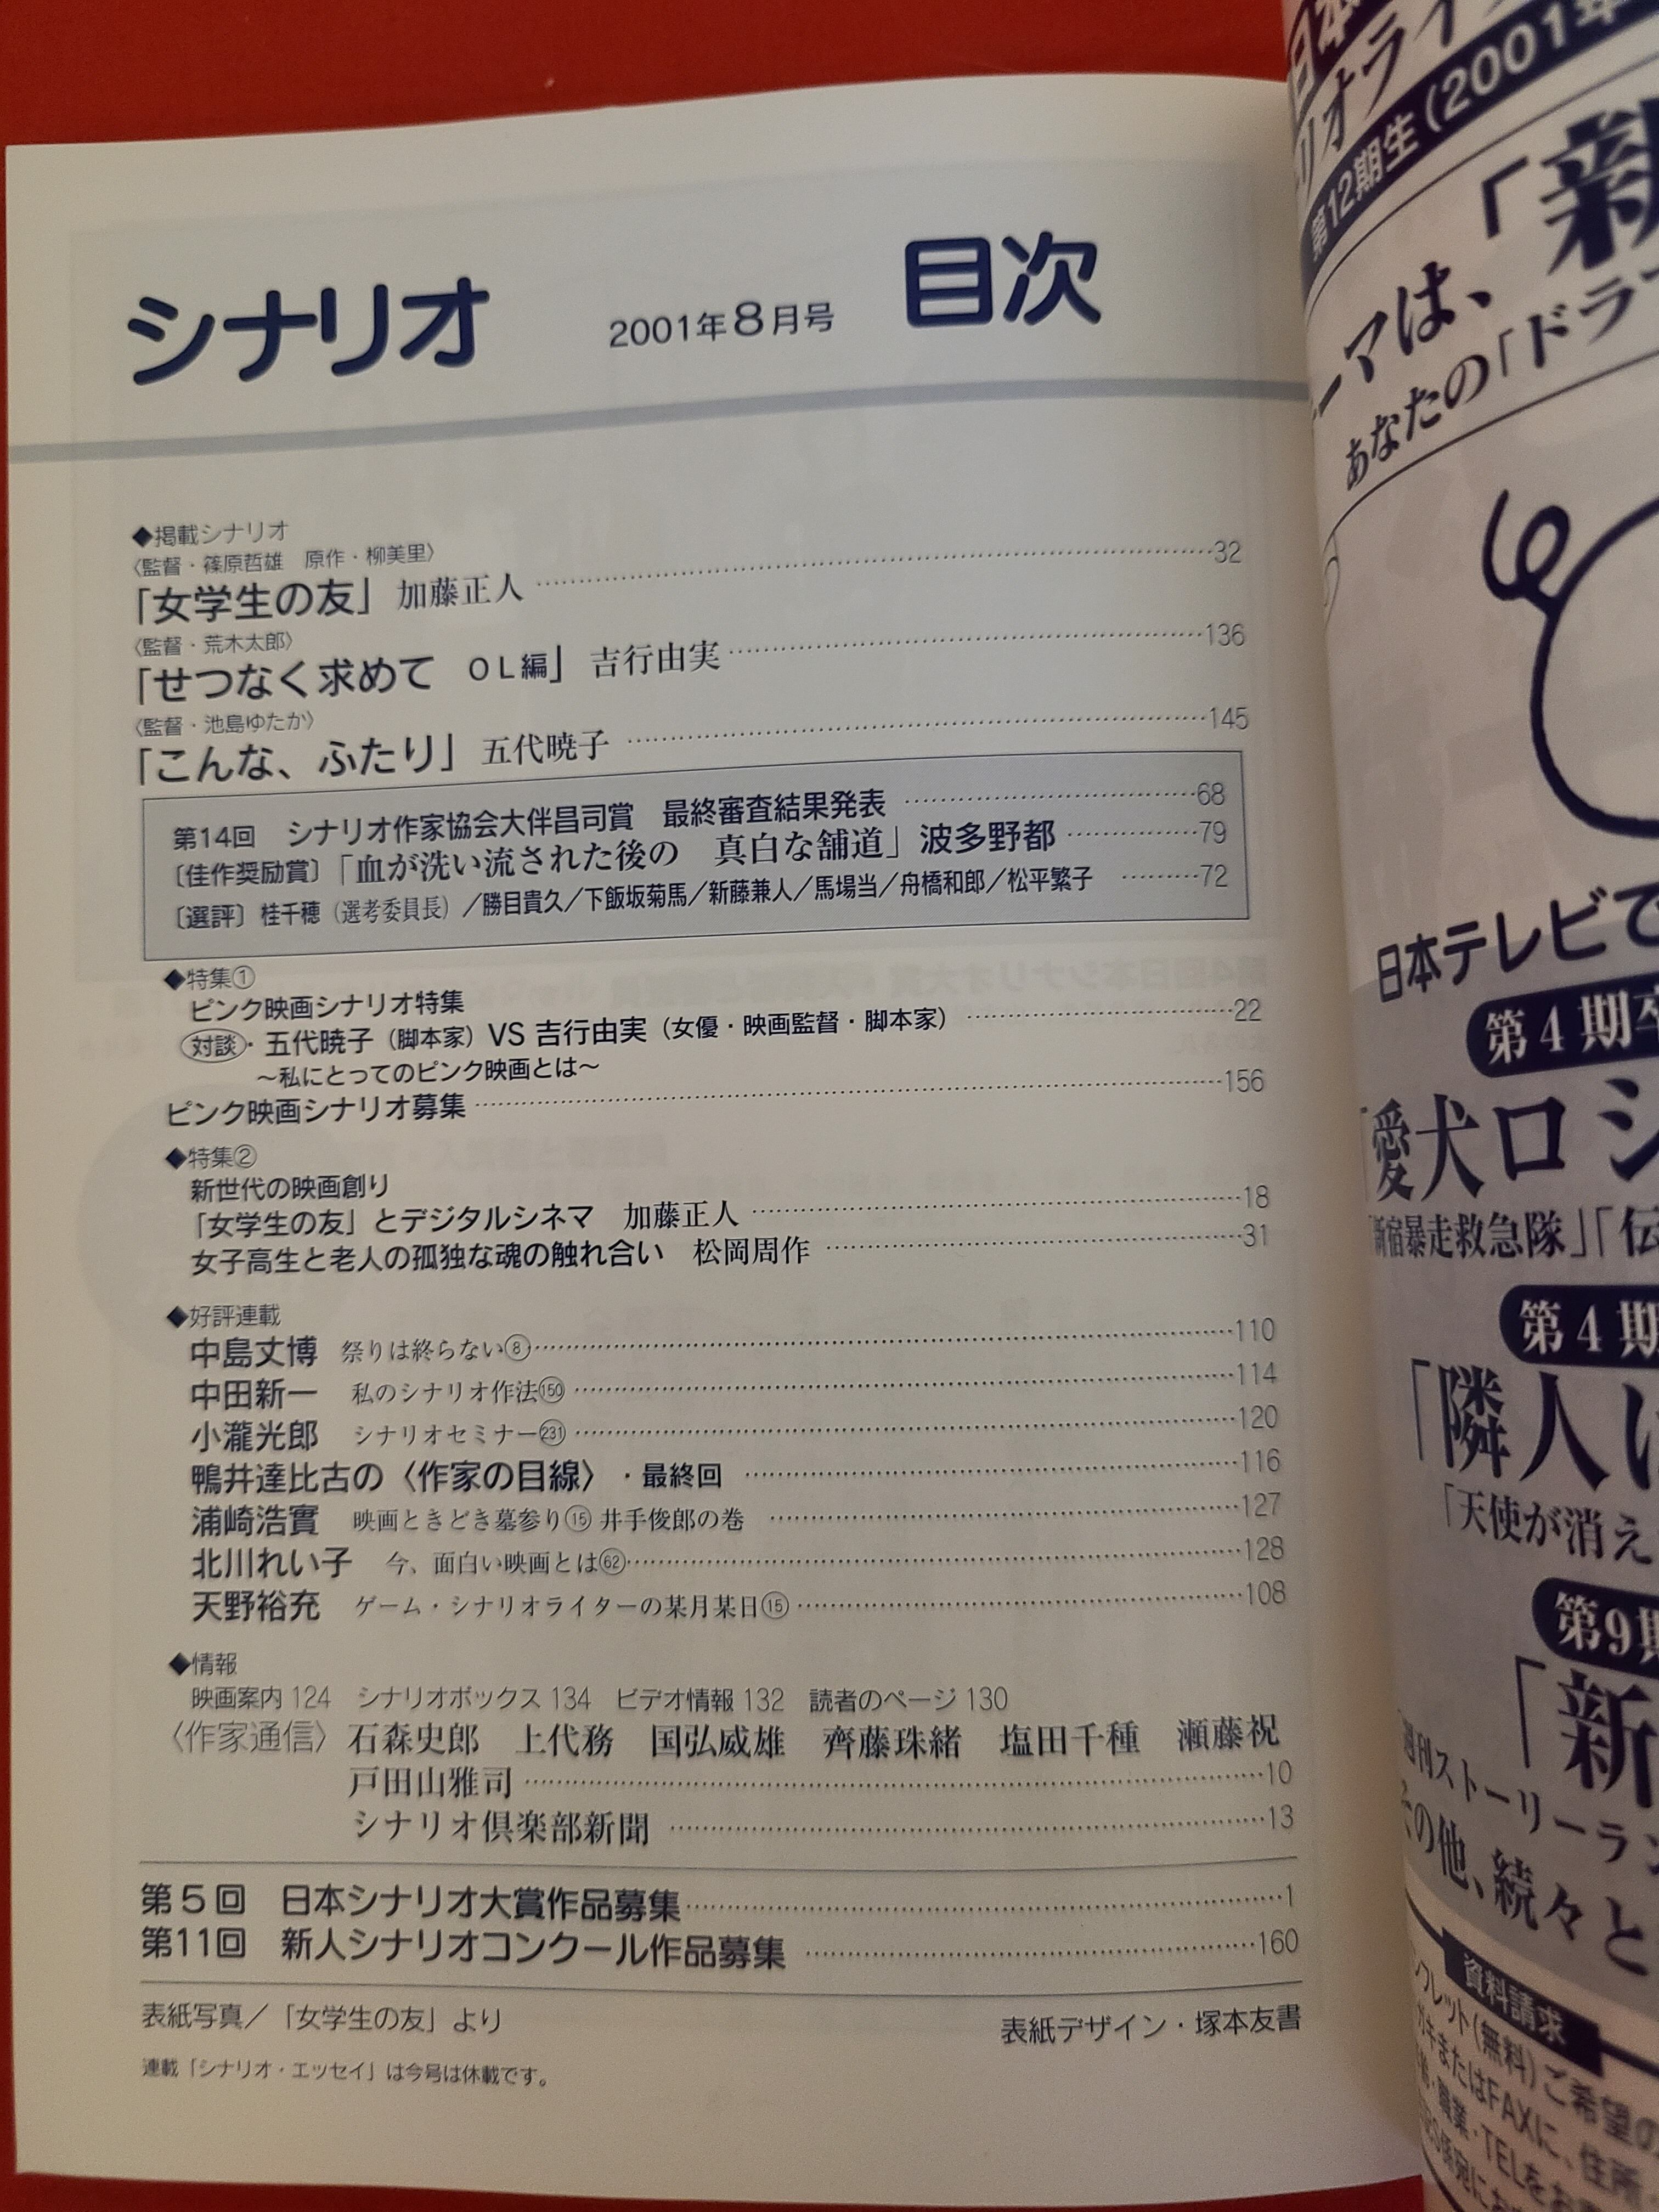 シナリオ 2001年8月号 目次
◆掲載シナリオ
〈監督・篠原哲雄 原作・柳美里〉
「女学生の友」 加藤正人 ……32
〈監督・荒木太郎〉
「せつなく求めて OL編」 吉行由実 ……136
〈監督・池島ゆたか〉
「こんな、ふたり」 五代暁子 ……145
第14回 シナリオ作家協会大伴昌司賞 最終審査結果発表 ……68
〔佳作奨励賞〕「血が洗い流された後の 真白な舗道」波多野都 ……79
〔選評〕桂千穂（選考委員長）／勝目貴久／下飯坂菊馬／新藤兼人／馬場当／舟橋和郎／松平繁子 ……72
◆特集①
ピンク映画シナリオ特集
対談・五代暁子（脚本家）VS 吉行由実（女優・映画監督・脚本家） ……22
～私にとってのピンク映画とは～
ピンク映画シナリオ募集 ……156
◆特集②
新世代の映画創り
「女学生の友」とデジタルシネマ 加藤正人 ……18
女子高生と老人の孤独な魂の触れ合い 松岡周作 ……31
◆好評連載
中島丈博 祭りは終らない⑧ ……110
中田新一 私のシナリオ作法(150) ……114
小瀧光郎 シナリオセミナー(231) ……120
鴨井達比古の〈作家の目線〉・最終回 ……116
浦崎浩實 映画ときどき墓参り⑮ 井手俊郎の巻 ……127
北川れい子 今、面白い映画とは(62) ……128
天野裕充 ゲーム・シナリオライターの某月某日⑮ ……108
◆情報
映画案内 124 シナリオボックス 134 ビデオ情報 132 読者のページ 130
〈作家通信〉 石森史郎 上代務 国弘威雄 齊藤珠緒 塩田千種 瀬藤祝
戸田山雅司 ……10
シナリオ倶楽部新聞 ……13
第5回 日本シナリオ大賞作品募集 ……1
第11回 新人シナリオコンクール作品募集 ……160
表紙写真／「女学生の友」より
表紙デザイン・塚本友書
連載「シナリオ・エッセイ」は今号は休載です。
第12期生（2001年
「新
ーマは、
あなたの「ドラマ
日本テレビで
第4期卒
「愛犬ロシ
「新宿暴走救急隊」「伝
第4期
「隣人は
「天使が消え
第9期
「新
週刊ストーリーラン
その他、続々と
資料請求
ンフレット（無料）ご希望の
ガキまたはFAXに、住所
職業・TELを